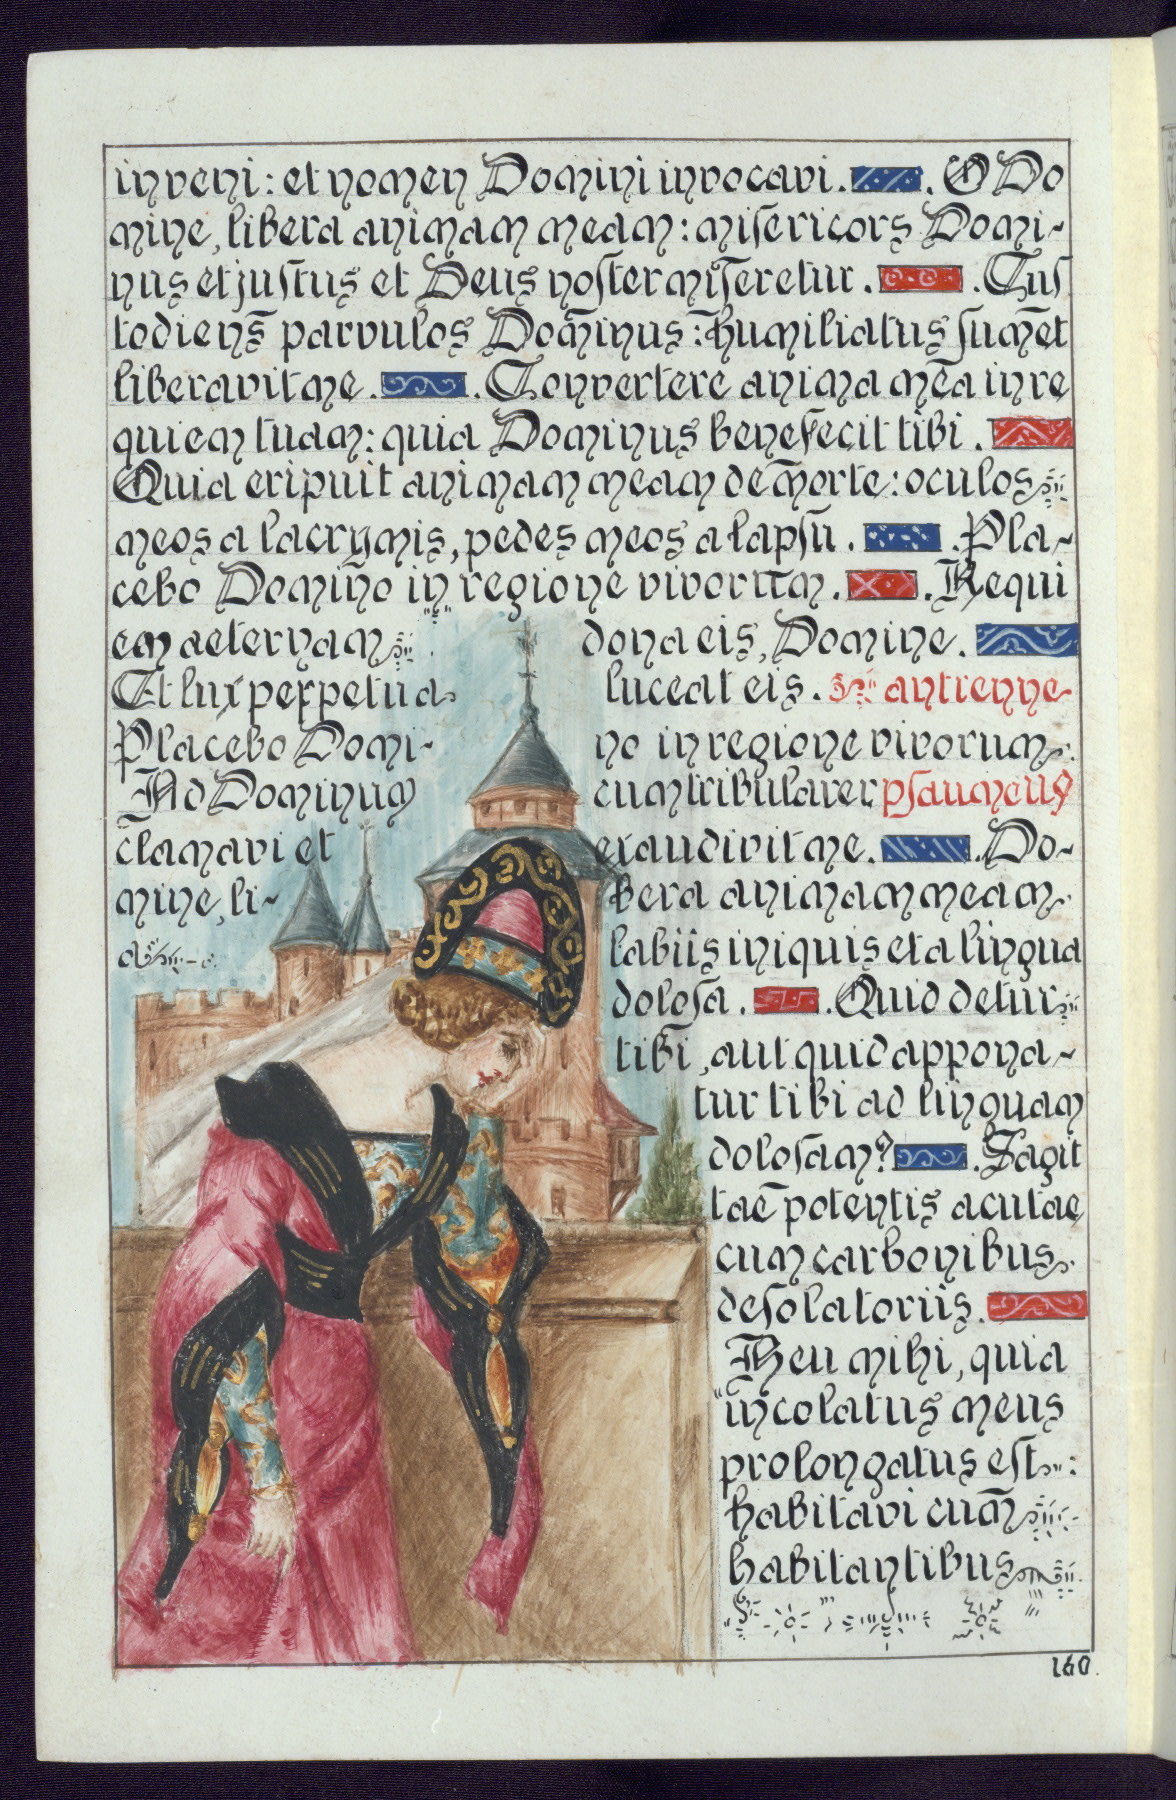 inveni: et nomen Domini invocavi. O Do
mine, libera animam meam: misericors Domi-
nus et justus et Deus noster miseretur. Cus
todiens parvulos Dominus: humiliatus sum et
liberavit me. Convertere anima mea in re
quiem tuam: quia Dominus benefecit tibi.
Quia eripuit animam meam de morte: oculos
meos a lacrymis, pedes meos a lapsu. Pla-
cebo Domino in regione vivorum. Requi
em aeternam dona eis, Domine.
Et lux perpetua luceat eis. antienne
Placebo Domi- no in regione vivorum.
Ad Dominum cum tribularer psaumeus
clamavi et exaudivit me. Do-
mine, li- bera animam meam
a labiis iniquis et a lingua
dolosa. Quid detur
tibi, aut quid appona-
tur tibi ad linguam
dolosam? Sagit
tae potentis acutae
cum carbonibus
desolatoriis.
Heu mihi, quia
incolatus meus
prolongatus est:
habitavi cum
habitantibus
160.